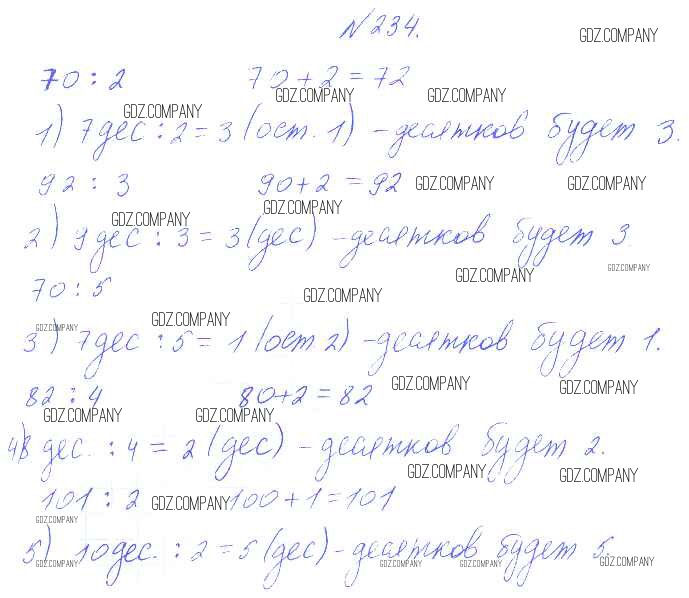 N 234.
GDZ.COMPANY
70 : 2 70 + 2 = 72
GDZ.COMPANY GDZ.COMPANY
GDZ.COMPANY
1) 7 дес : 2 = 3 (ост. 1) - десятков будет 3.
92 : 3 90 + 2 = 92 GDZ.COMPANY GDZ.COMPANY
GDZ.COMPANY GDZ.COMPANY
2) 9 дес : 3 = 3 (дес) - десятков будет 3.
GDZ.COMPANY GDZ.COMPANY
70 : 5 GDZ.COMPANY
GDZ.COMPANY GDZ.COMPANY
3) 7 дес : 5 = 1 (ост 2) - десятков будет 1.
82 : 4 80 + 2 = 82 GDZ.COMPANY GDZ.COMPANY
GDZ.COMPANY GDZ.COMPANY
4) 8 дес. : 4 = 2 (дес) - десятков будет 2.
GDZ.COMPANY GDZ.COMPANY
101 : 2 GDZ.COMPANY 100 + 1 = 101
GDZ.COMPANY
5) 10 дес. : 2 = 5 (дес) - десятков будет 5.
GDZ.COMPANY GDZ.COMPANY GDZ.COMPANY GDZ.COMPANY